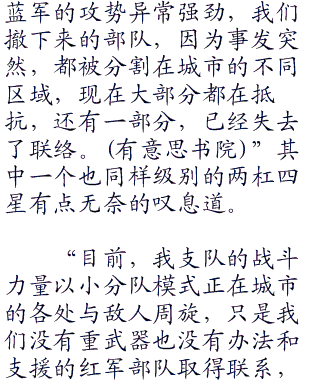 蓝军的攻势异常强劲，我们
撤下来的部队，因为事发突
然，都被分割在城市的不同
区域，现在大部分都在抵
抗，还有一部分，已经失去
了联络。(有意思书院)”其
中一个也同样级别的两杠四
星有点无奈的叹息道。
“目前，我支队的战斗
力量以小分队模式正在城市
的各处与敌人周旋，只是我
们没有重武器也没有办法和
支援的红军部队取得联系，